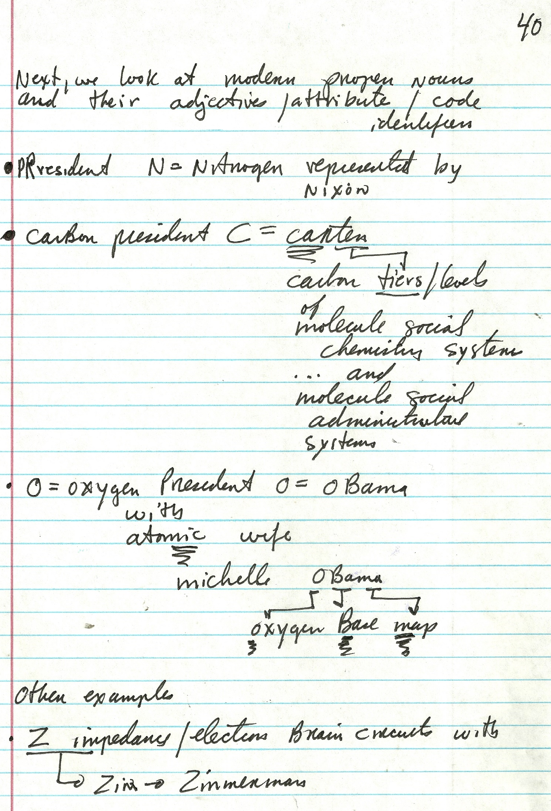 40
Next, we look at modern proper nouns
and their adjectives / attribute / code
identifiers
• PResident N = Nitrogen represented by
Nixon
• carbon president C = carter
carbon tiers / levels
of
molecule social
chemistry systems
... and
molecule social
administrative
systems
• O = oxygen President O = OBama
with
atomic wife
michelle OBama
oxygen Base map
Other examples
• Z impedance / electrons Brain circuits with
Zim → Zimmerman